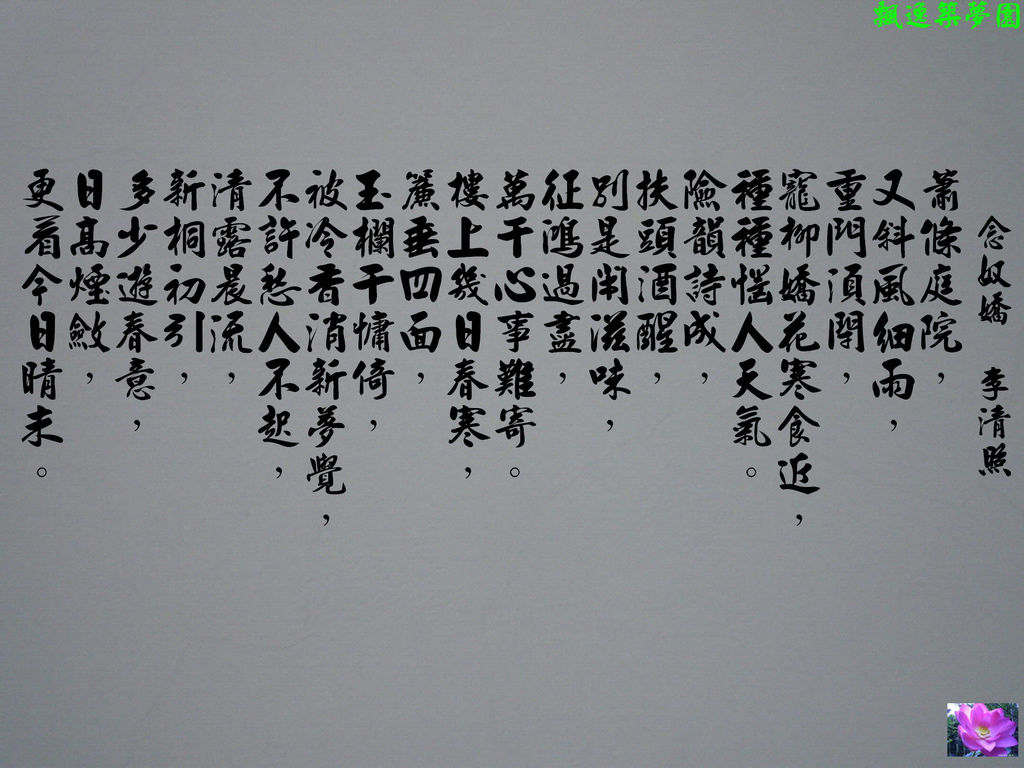 飄逸築夢園
念奴嬌 李清照
蕭條庭院，
又斜風細雨，
重門須閉，
寵柳嬌花寒食近，
種種惱人天氣。
險韻詩成，
扶頭酒醒，
別是閒滋味，
征鴻過盡，
萬千心事難寄。
樓上幾日春寒，
簾垂四面，
玉欄干慵倚，
被冷香消新夢覺，
不許愁人不起，
清露晨流，
新桐初引，
多少遊春意，
日高煙斂，
更看今日晴未。